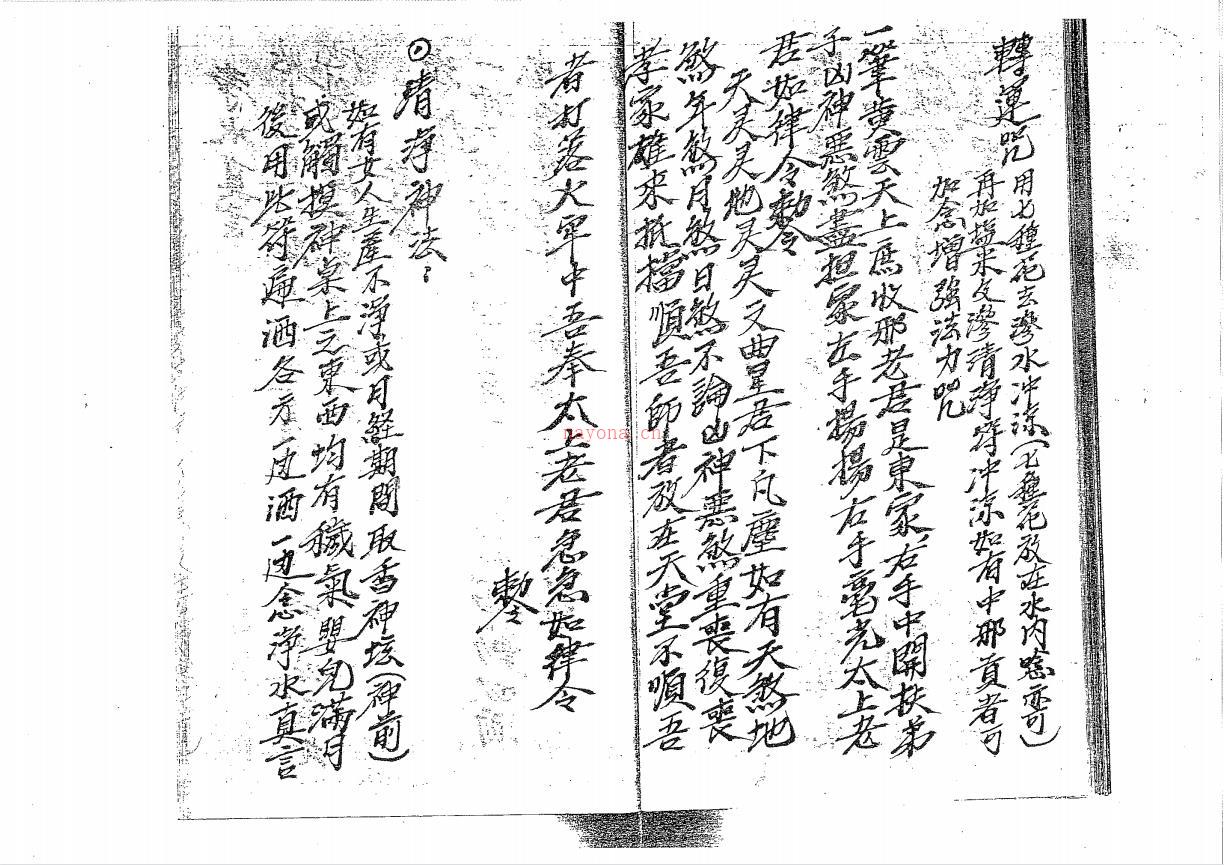 轉運咒 用七種花去滲水冲涼(七種花放在水内唸亦可)
再加塩米文滲清淨符冲涼如有中邪貢者可
加念增強法力咒
一筆黄雲天上馬收邪老君是東家右手中開扶弟
子凶神惡煞盡担家左手揚揚右手毫光太上老
君如律令勅令
天灵灵地灵灵文曲星君下凡塵如有天煞地
煞年煞月煞日煞不論凶神惡煞重喪復喪
孝家雄來抵擋順吾師者放在天堂不順吾
者打落火軍中吾奉太上老君急急如律令
勅令
清淨神法:
如有女人生產不淨或月經期間取香神坛(神前)
或觸摸神桌上之東西均有穢氣嬰兒滿月
後用此符遍洒各方一边洒一边念淨水真言
nayona.cn